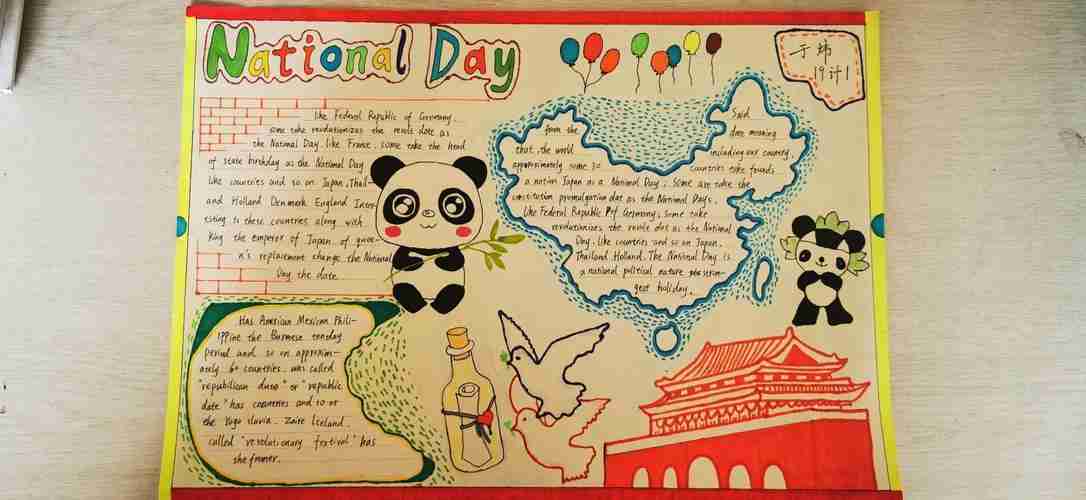 National Day
于炜
19计1
like Federal Republic of Germany.
some take revolutionizes the revels date as
the National Day, like France. some take the head
of state birthday as the National Day
like countries and so on Japan, Thail-
and Holland Denmark England Inter-
esting to these countries along with
King the emperor of Japan, of
n's replacement change the National
Day the date.
Said
from the
date meaning
that, the world
including our country
approximately some 30
countries take founds
a nation Japan as a National Day, some are take the
constitution promulgation dat as the National Days.
Like Federal Republic Of Germany, some take
revolutionizes the revels dat as the National
Day. Like countries and so on Japan,
Thailand Holland. The National Day is
a national political nature
gest holiday.
Has American Mexican Phili-
ippine the Burmese tenday
period and so on approxim-
ately 6+ countries. was called
"republican date" or "republic
date." has countries and so or
the Yugo slavia. Zaire Iceland.
called "revolutionary festival" has
she framer.